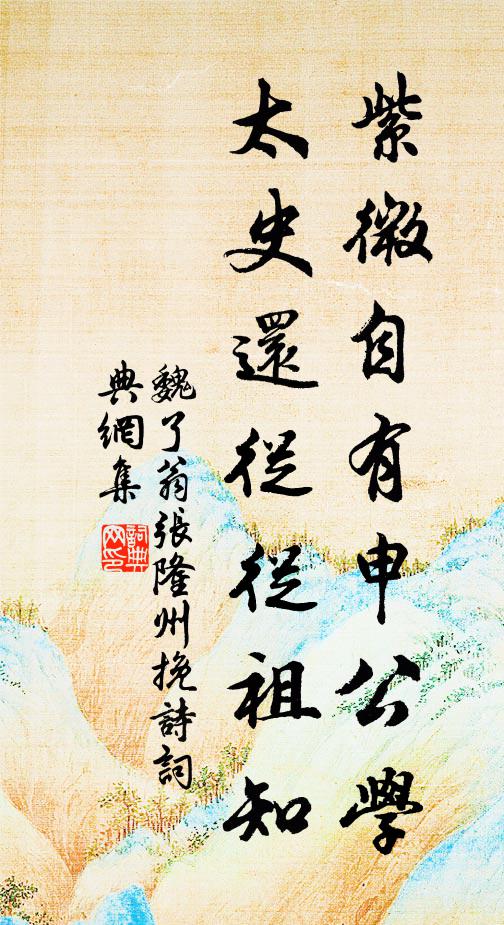 紫微自有申公學
太史還從從祖知
魏了翁張隆州挽詩詞
典網集
詞典